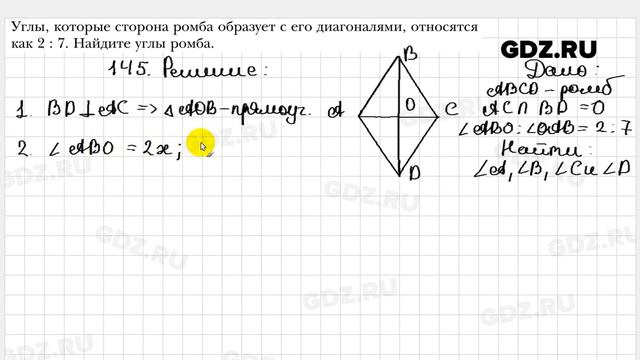 Углы, которые сторона ромба образует с его диагоналями, относятся
как 2 : 7. Найдите углы ромба.
GDZ.RU
145. Решение:
Дано:
ABCD - ромб
AC ∩ BD = O
∠ABO : ∠OAB = 2 : 7
Найти:
∠A, ∠B, ∠C и ∠D
1. BD ⊥ AC => △AOB - прямоуг.
2. ∠ABO = 2x;
B
A
O
C
D
GDZ.RU
GDZ.RU
GDZ.RU
GDZ.RU
GDZ.RU
GDZ.RU